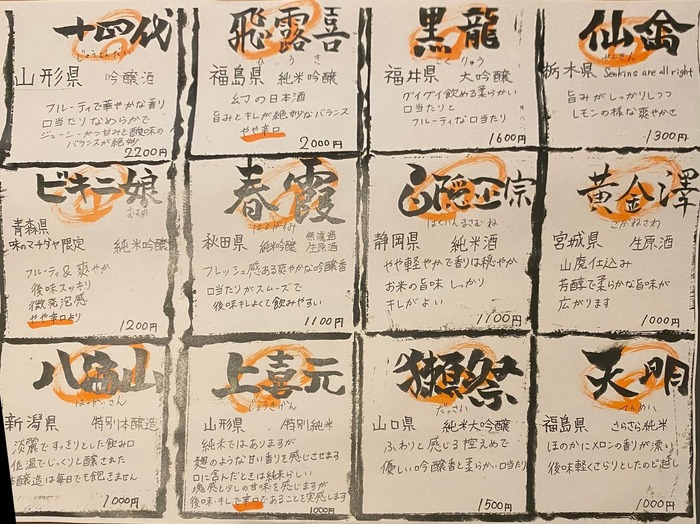 十四代
じゅうよんだい
山形県 吟醸酒
フルーティで華やかな香り
口当たりなめらかで
ジューシーかつ甘みと酸味の
バランスが絶妙
2200円
飛露喜
ひろき
福島県 純米吟醸
幻の日本酒
旨みとキレが絶妙なバランス
やや辛口
2000円
黒龍
こくりゅう
福井県 大吟醸
グイグイ飲める柔らかい
口当たりと
フルーティな口当たり
1600円
仙禽
せんきん
栃木県 Senkins are all right
旨みがしっかりしつつ
レモンの様な爽やかさ
1300円
ビキニ娘
むすめ
青森県
味のマチダヤ限定 純米吟醸
フルーティ&爽やか
後味スッキリ
微発泡感
やや辛口より
1200円
春霞
はるかすみ
秋田県 純米吟醸 無濾過生原酒
フレッシュ感ある爽やかな吟醸香
口当たりがスムーズで
後味キレよくて飲みやすい
1100円
白隠正宗
はくいんまさむね
静岡県 純米酒
やや軽やかで香りは穏やか
お米の旨味しっかり
キレがよい
1100円
黄金澤
こがねさわ
宮城県 生原酒
山廃仕込み
芳醇で柔らかな旨味が
広がります
1000円
八海山
はっかいさん
新潟県 特別本醸造
淡麗ですっきりとした飲み口
低温でじっくりと醸された
本醸造は毎日でも飽きません
1000円
上喜元
じょうきげん
山形県 特別純米
純米ではありますが
麹のような甘い香りを感じさせます
口に含んだときは純米らしい
塊感と少しの甘味を感じますが
後味・キレで辛口であることを実感します
1000円
獺祭
だっさい
山口県 純米大吟醸
ふわりと感じる控えめで
優しい吟醸香と柔らかい口当たり
1500円
天明
てんめい
福島県 さらさら純米
ほのかにメロンの香りが漂い
後味軽くさらりとしたのど越し
1000円